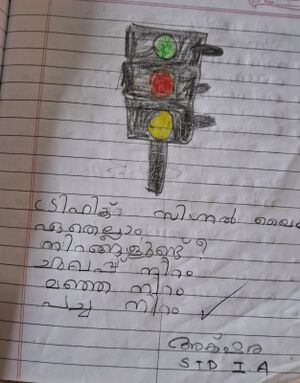 ട്രാഫിക് സിഗ്നൽ ലൈ
ഏതെല്ലാം
നിറങ്ങളുണ്ട് ?
ചുവപ്പ് നിറം
മഞ്ഞ നിറം
പച്ച നിറം
STD I. A